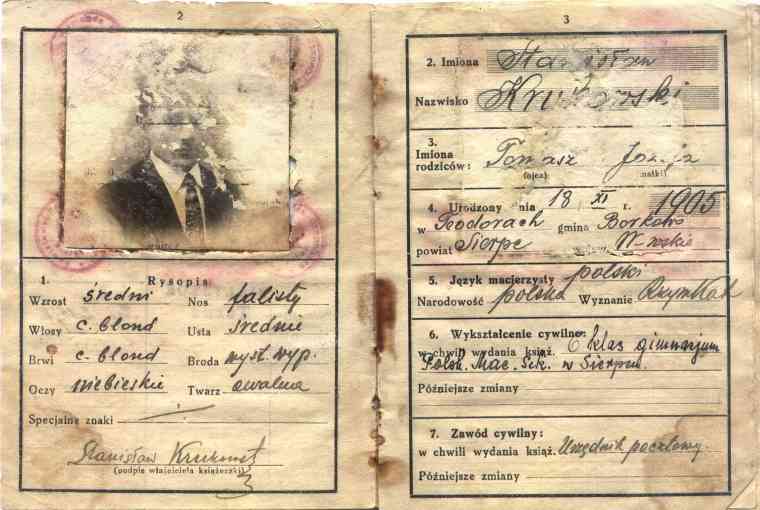 2
1. Rysopis
Wzrost średni Nos falisty
Włosy c. blond Usta średnie
Brwi c. blond Broda wyst. wyp.
Oczy niebieskie Twarz owalna
Specjalne znaki
Stanisław
(podpis właściciela książeczki)
3
2. Imiona Stanisław
Nazwisko Krukowski
3.
Imiona
rodziców: Tomasz Józefa
(ojca) (matki)
4. Urodzony dnia 18 XI r. 1905
w Teodorach gmina Borkowo
powiat Sierpc W-wskie
5. Język macierzysty polski
Narodowość polska Wyznanie Rzym Kat
6. Wykształcenie cywilne:
w chwili wydania książ. 6 klas gimnazjum
Mac. Szk. w Sierpcu.
Późniejsze zmiany
7. Zawód cywilny:
w chwili wydania książ. Urzędnik pocztowy.
Późniejsze zmiany